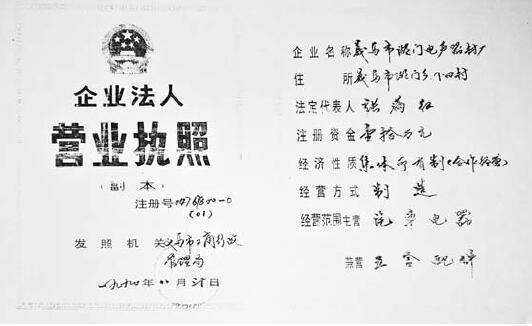 企业法人
营业执照
(副本)
注册号
(01)
发照机关 义乌市工商行政
管理局
一九九〇年 八 月 日
企业名称 义乌市 门电声器材厂
住所 义乌市 门乡 村
法定代表人
注册资金 壹拾万元
经济性质 集体所有制(合作经营)
经营方式 制造
经营范围主营 汽车电器
兼营 五金配件